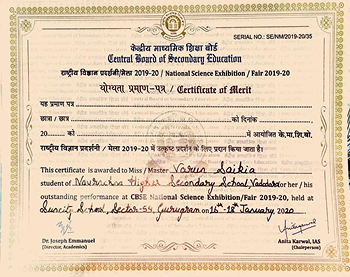 SERIAL NO.: SE/NM/2019-20/35
केन्द्रीय माध्यमिक शिक्षा बोर्ड
Central Board of Secondary Education
राष्ट्रीय विज्ञान प्रदर्शनी/मेला 2019-20 / National Science Exhibition / Fair 2019-20
योग्यता प्रमाण-पत्र / Certificate of Merit
यह प्रमाण पत्र
छात्र / छात्रा को दिनांक
20 को में आयोजित के.मा.शि.बो.
राष्ट्रीय विज्ञान प्रदर्शनी / मेला 2019-20 में उत्कृष्ट प्रदर्शन के लिए प्रदान किया जाता है।
This certificate is awarded to Miss / Master Varun Saikia
student of Navrachna Higher Secondary School, Vadodara for his / her
outstanding performance at CBSE National Science Exhibition/Fair 2019-20, held at
School, Sector-54, Gurugram on 16-18 January, 2020
Dr. Joseph Emmanuel
(Director, Academics)
Anita Karwal, IAS
(Chairperson, CBSE)